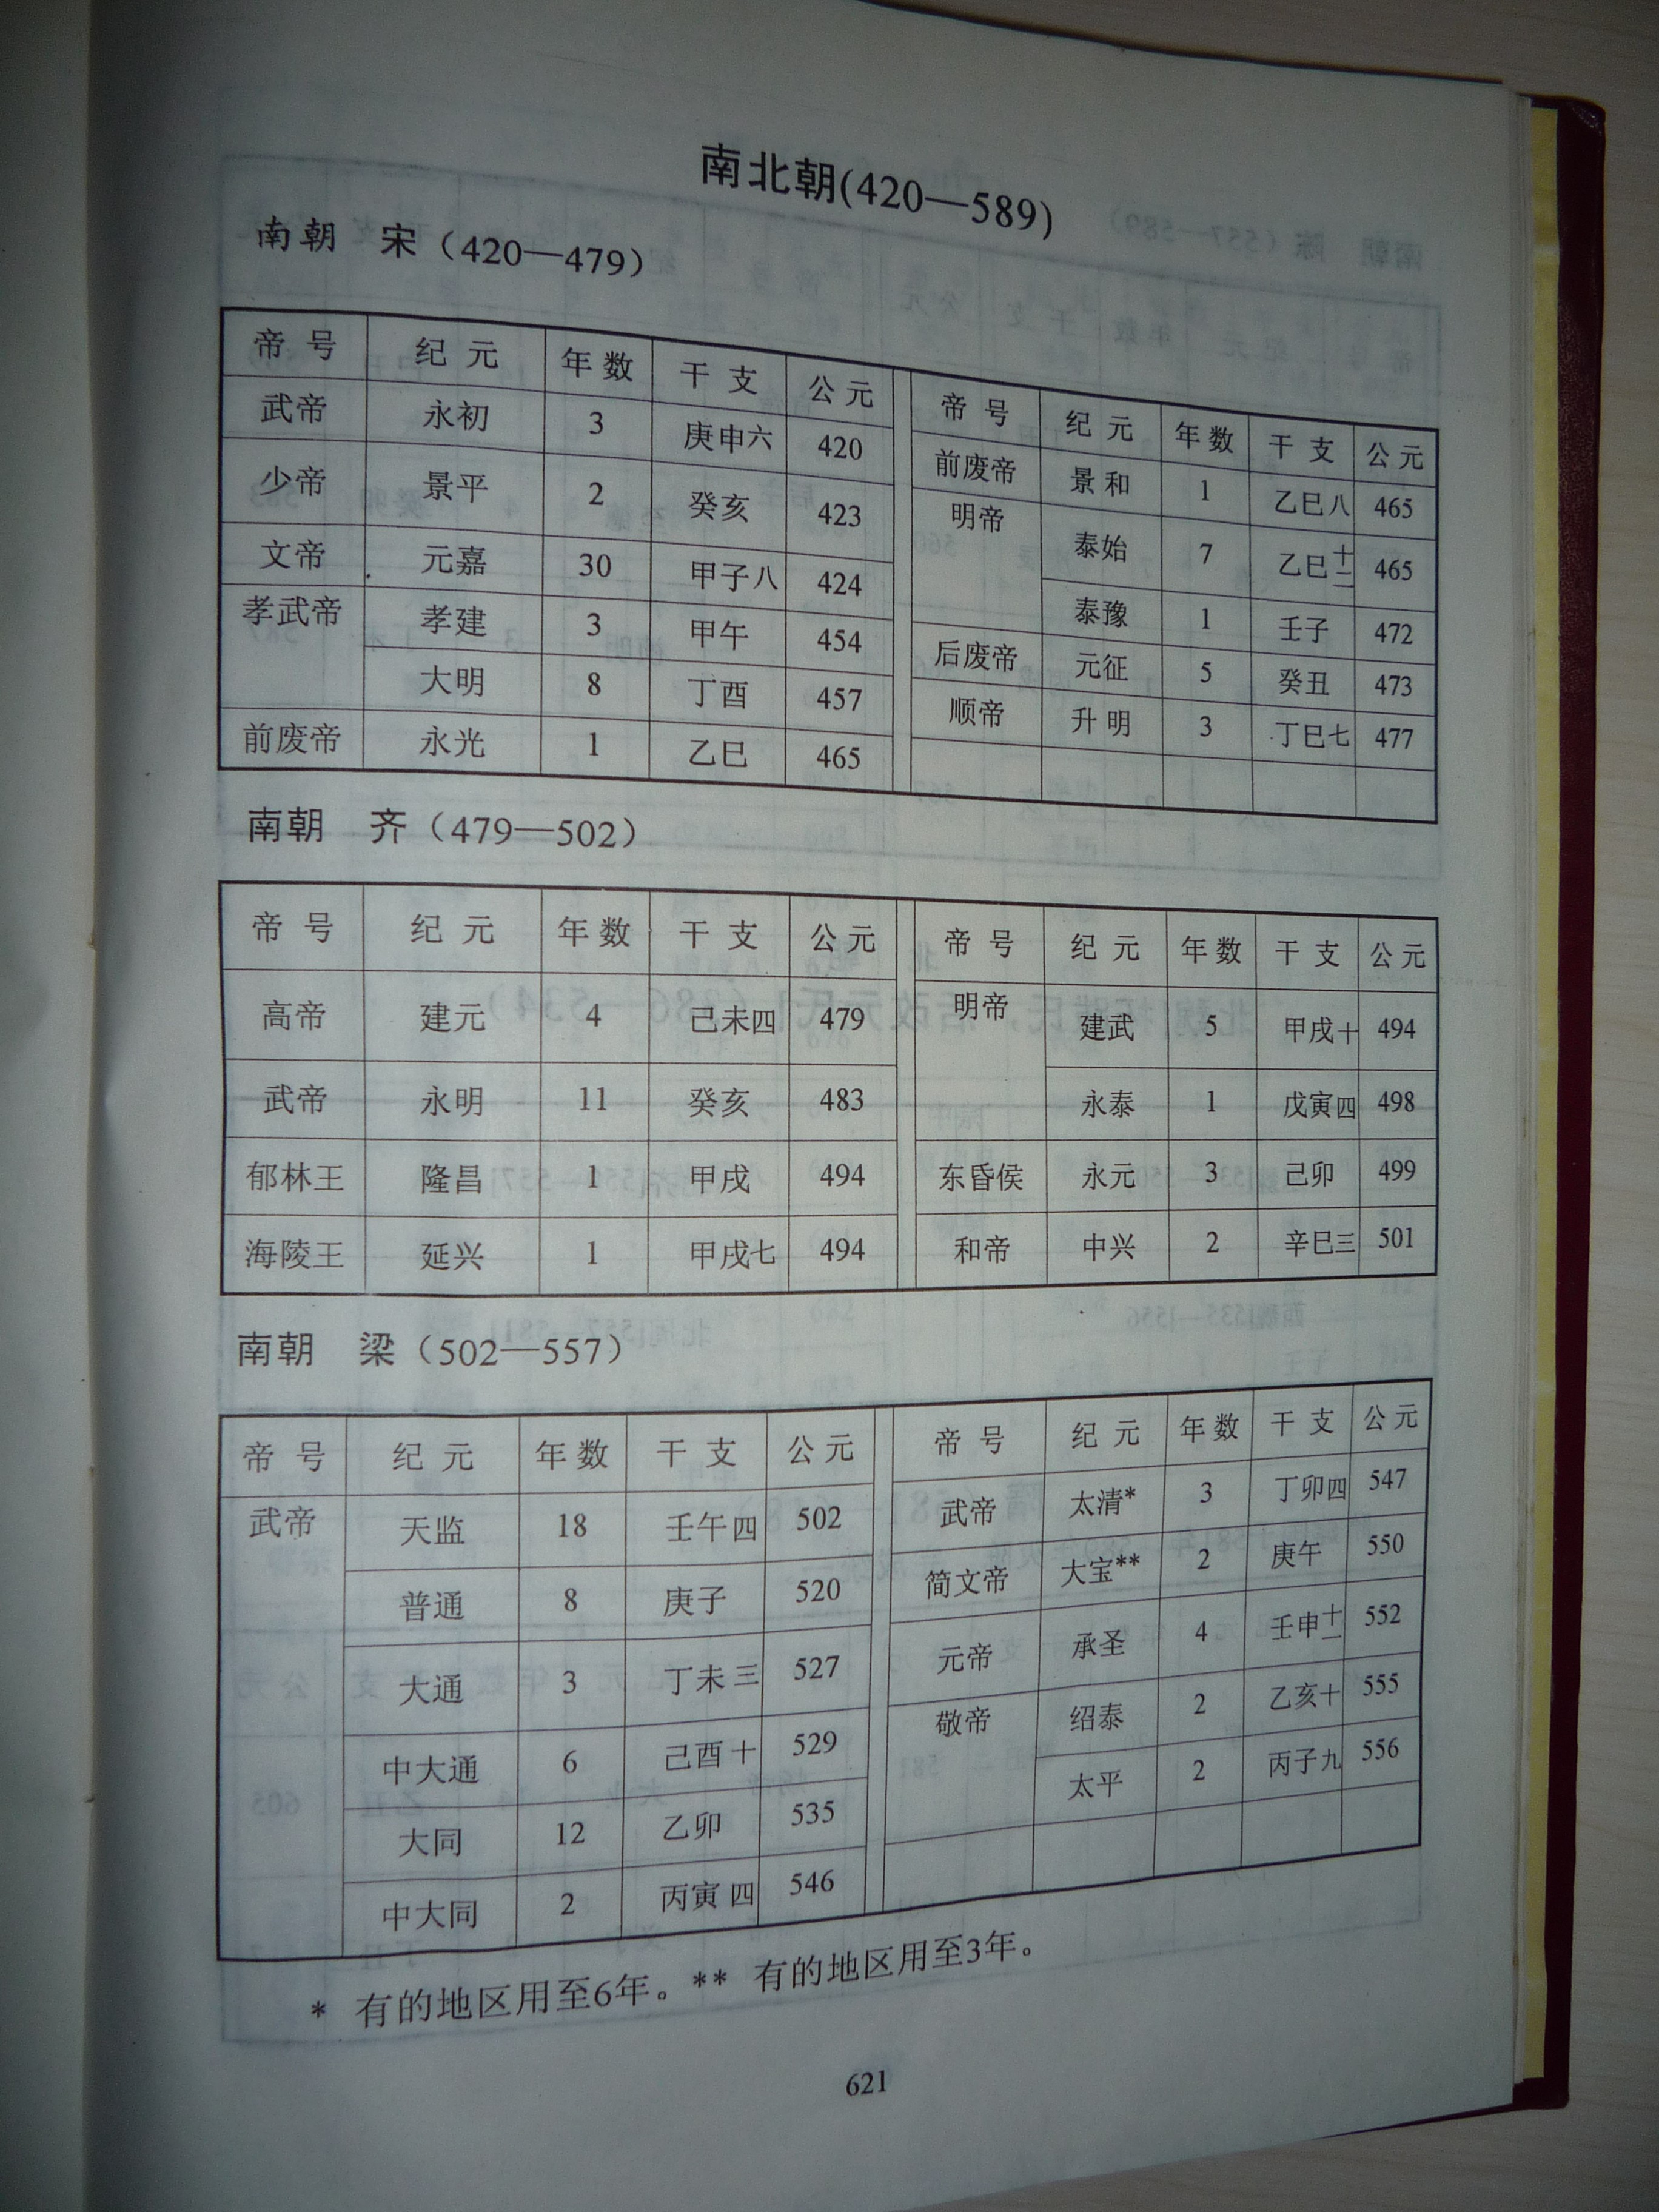 南北朝(420—589)
南朝 宋（420—479）
帝号 纪元 年数 干支 公元
武帝 永初 3 庚申六 420
少帝 景平 2 癸亥 423
文帝 元嘉 30 甲子八 424
孝武帝 孝建 3 甲午 454
大明 8 丁酉 457
前废帝 永光 1 乙巳 465
帝号 纪元 年数 干支 公元
前废帝 景和 1 乙巳八 465
明帝 泰始 7 乙巳十二 465
泰豫 1 壬子 472
后废帝 元征 5 癸丑 473
顺帝 升明 3 丁巳七 477
南朝 齐（479—502）
帝号 纪元 年数 干支 公元
高帝 建元 4 己未四 479
武帝 永明 11 癸亥 483
郁林王 隆昌 1 甲戌 494
海陵王 延兴 1 甲戌七 494
帝号 纪元 年数 干支 公元
明帝 建武 5 甲戌十 494
永泰 1 戊寅四 498
东昏侯 永元 3 己卯 499
和帝 中兴 2 辛巳三 501
南朝 梁（502—557）
帝号 纪元 年数 干支 公元
武帝 天监 18 壬午四 502
普通 8 庚子 520
大通 3 丁未三 527
中大通 6 己酉十 529
大同 12 乙卯 535
中大同 2 丙寅四 546
帝号 纪元 年数 干支 公元
武帝 太清* 3 丁卯四 547
简文帝 大宝** 2 庚午 550
元帝 承圣 4 壬申十一 552
敬帝 绍泰 2 乙亥十 555
太平 2 丙子九 556
* 有的地区用至6年。** 有的地区用至3年。
621